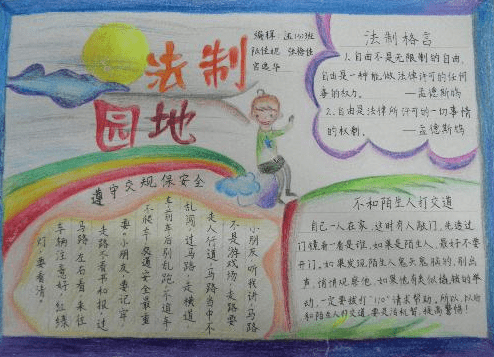 法制
园地
编辑:
张德佳
法制格言
1.自由不是无限制的自由,
自由是一种能做法律许可的任何
事的权力。 —孟德斯鸠
2.自由是法律所许可的一切事情
的权利。 —孟德斯鸠
遵守交规保安全
小朋友听我讲,马路
不是游戏场,走路要
走人行道,马路当中不
乱闯,过马路,走横道
车前车后别乱跑,不追车
不候车,交通安全最重
要。小朋友,要记牢,
走路不看书和报,过
马路,左右看,来往
车辆注意好,红绿
灯,要看清,
不和陌生人打交道
自己一人在家,这时有人敲门,先透过
门镜看一看是谁,如果是陌生人,最好不要
开门。如果发现陌生人鬼头鬼脑的,别出
声,悄悄观察他,如果他有类似撬锁的举
动,一定要拨打"110"请求帮助。所以,以后
和陌生人打交道,要灵活机智,提高警惕!